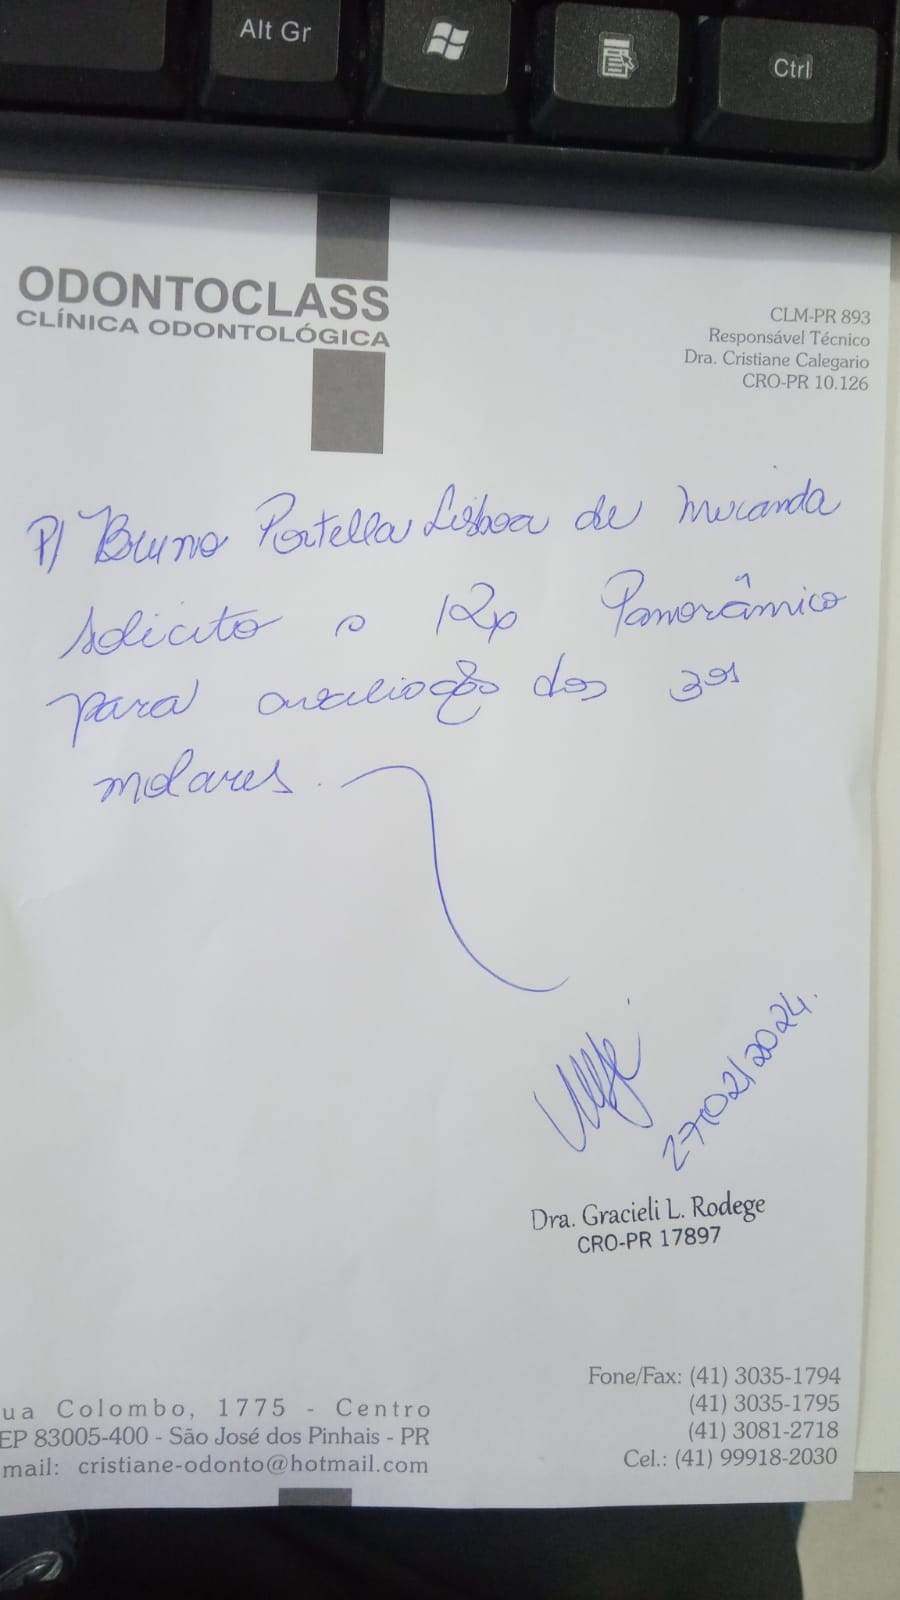 Alt Gr
Ctrl
ODONTOCLASS
CLÍNICA ODONTOLÓGICA
CLM-PR 893
Responsável Técnico
Dra. Cristiane Calegario
CRO-PR 10.126
P/ Bruno Portella Lisboa de Miranda
solicito o Rx Panorâmico
para avaliação dos 3ºs
molares.
27/02/2024.
Dra. Gracieli L. Rodege
CRO-PR 17897
ua Colombo, 1775 - Centro
EP 83005-400 - São José dos Pinhais - PR
mail: cristiane-odonto@hotmail.com
Fone/Fax: (41) 3035-1794
(41) 3035-1795
(41) 3081-2718
Cel.: (41) 99918-2030